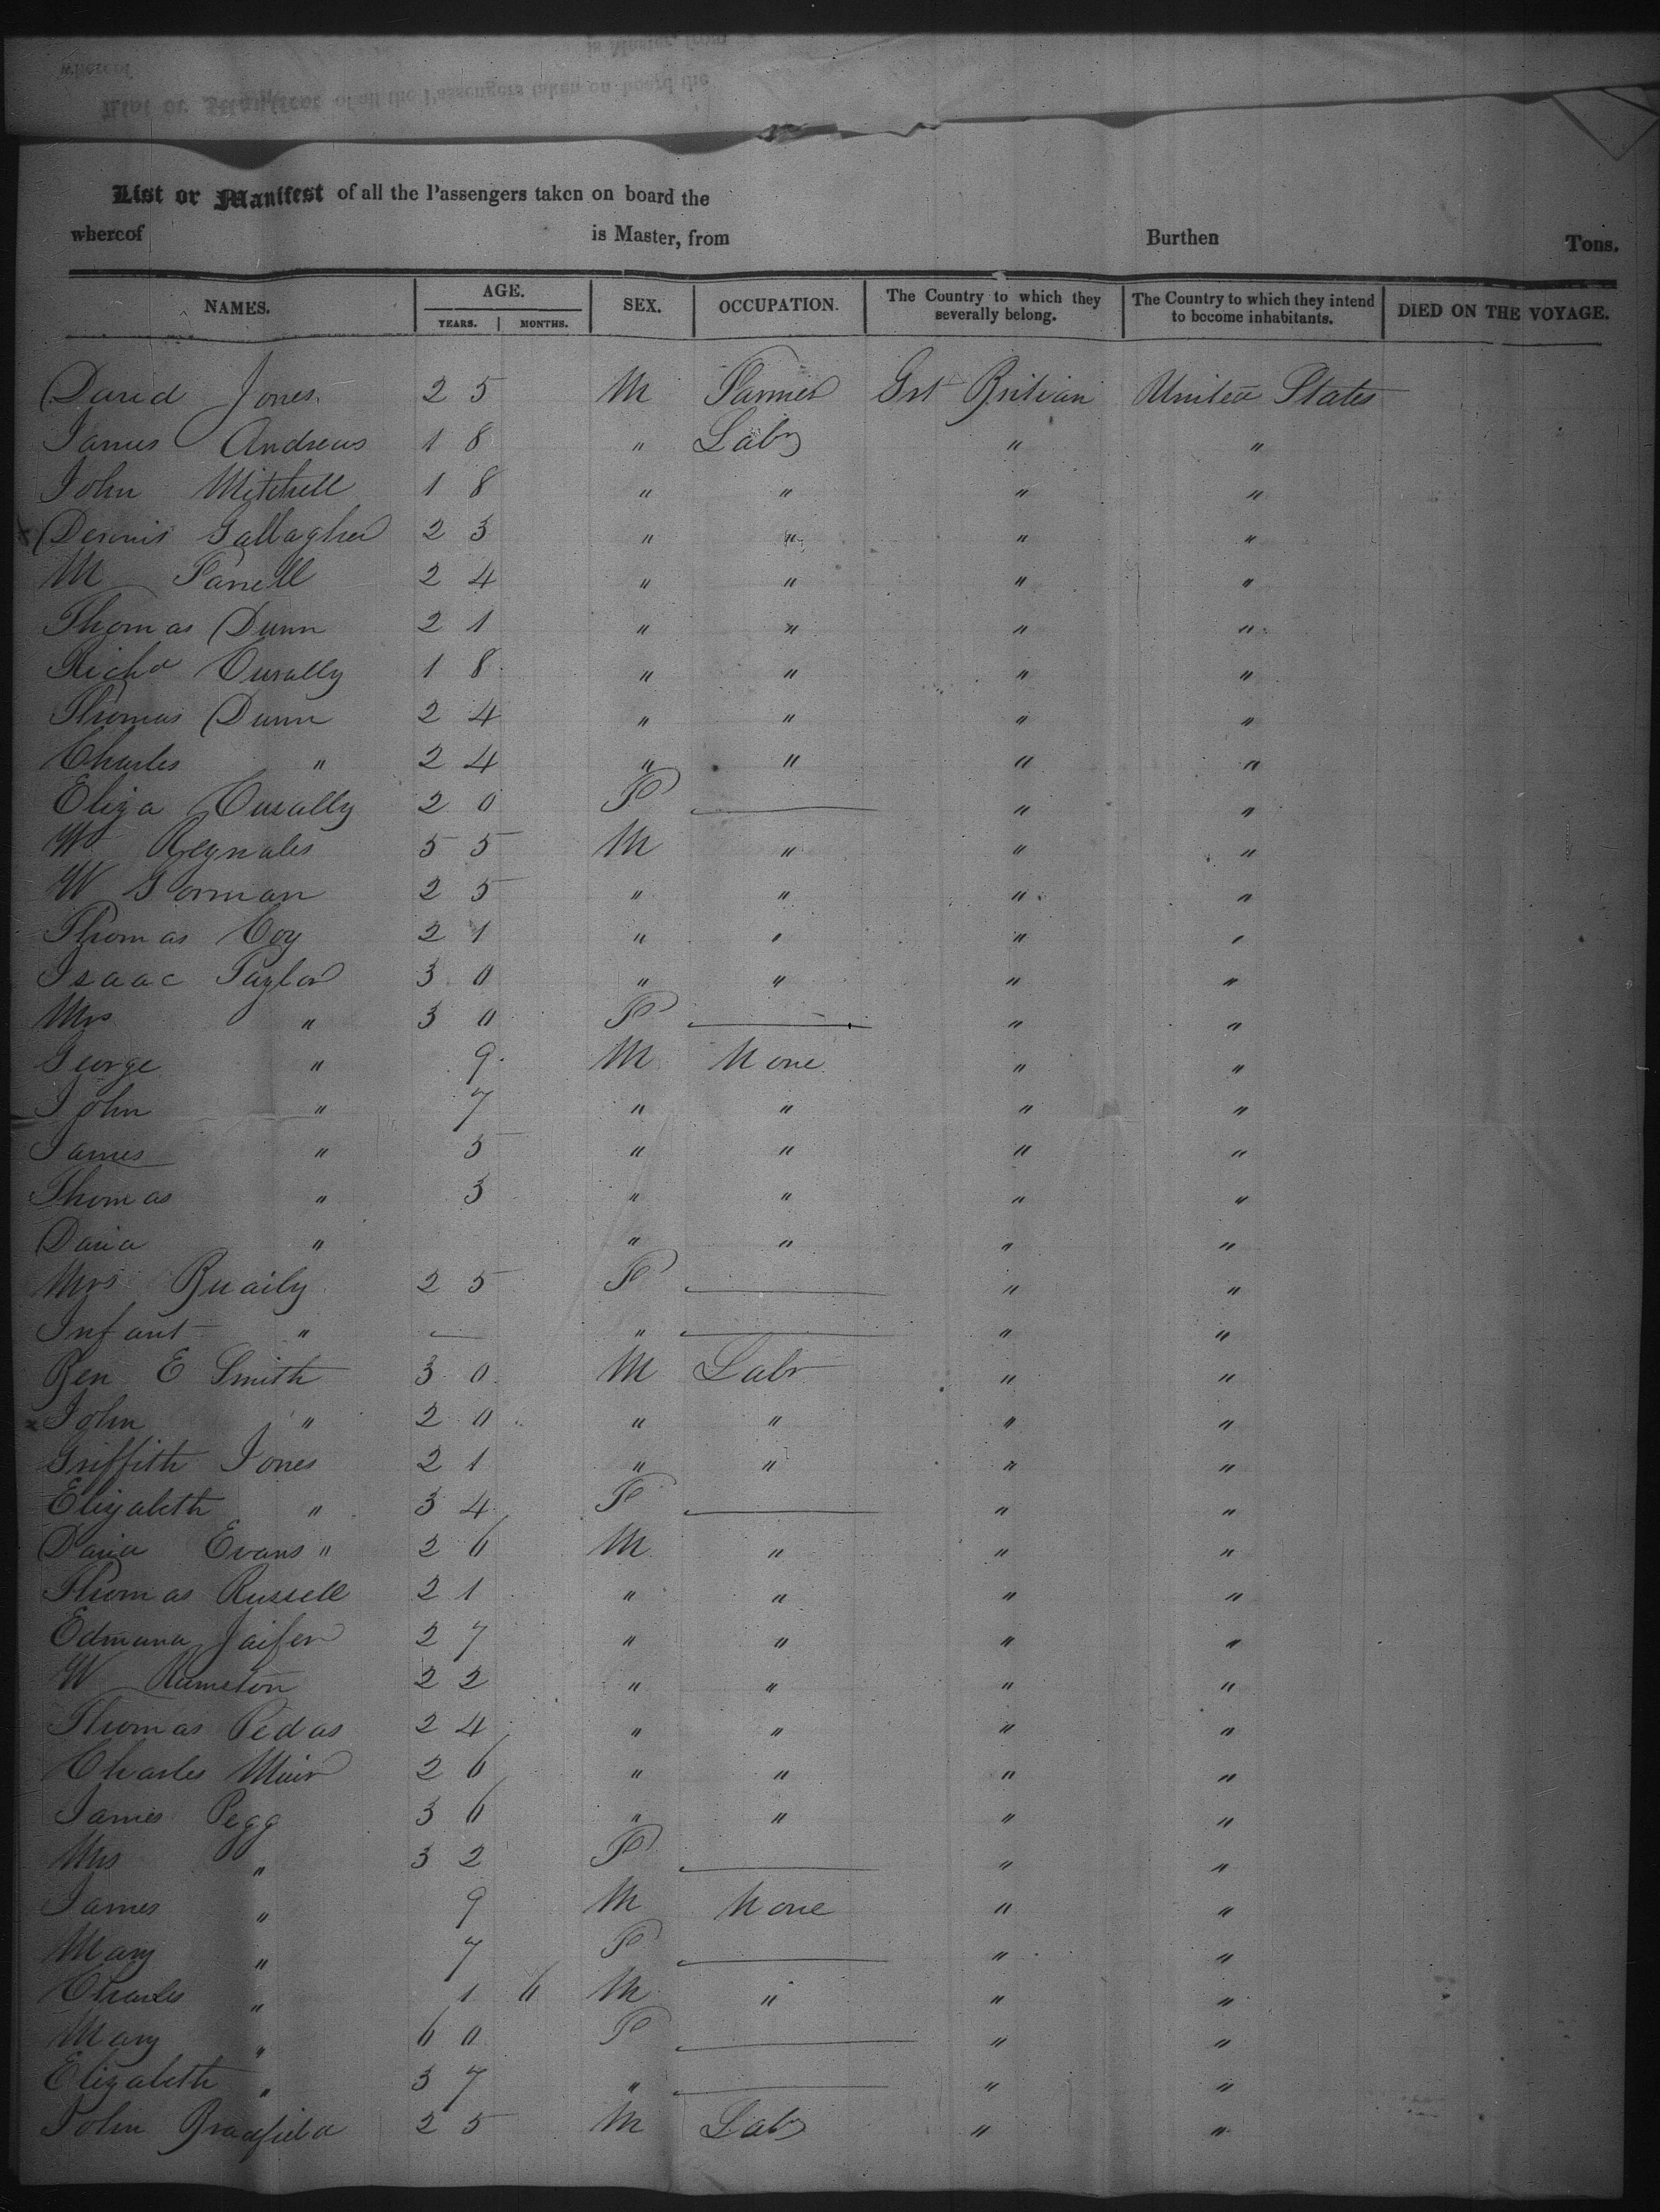 List or Manifest of all the Passengers taken on board the
whereof is Master, from Burthen Tons.
NAMES. AGE. YEARS. MONTHS. SEX. OCCUPATION. The Country to which they severally belong. The Country to which they intend to become inhabitants. DIED ON THE VOYAGE.
David Jones 25 M Farmer Grt Britian United States
James Andrews 18 " Labr " "
John Mitchell 18 " " " "
Dennis Gallagher 23 " " " "
M Farrell 24 " " " "
Thomas Dunn 21 " " " "
Richd 18 " " " "
Thomas Dunn 24 " " " "
Charles " 24 " " " "
Eliza 20 F — " "
W Reynales 55 M " " "
W Gorman 25 " " " "
Thomas Coy 21 " " " "
Isaac Taylor 30 " " " "
Mrs " 30 F — " "
George " 9 M None " "
John " 7 " " " "
James " 5 " " " "
Thomas " 3 " " " "
David " " " " "
Mrs 25 F — " "
Infant " — " — " "
Ben E Smith 30 M Labr " "
John " 20 " " " "
Griffith Jones 21 " " " "
Elizabeth " 34 F — " "
David Evans " 26 M " " "
Thomas Russell 21 " " " "
Edmund 27 " " " "
W 22 " " " "
Thomas Pedas 24 " " " "
Charles Muir 26 " " " "
James Pegg 36 " " " "
Mrs " 32 F — " "
James " 9 M None " "
Mary " 7 F — " "
Charles " 1 6 M " " "
Mary " 60 F — " "
Elizabeth " 37 " — " "
John Bradfield 25 M Labr " "